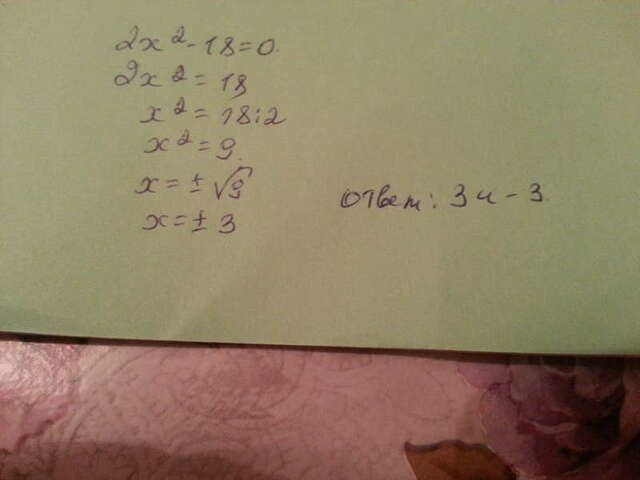 2x² - 18 = 0.
2x² = 18
x² = 18 : 2
x² = 9.
x = ± √9
x = ± 3
ответ: 3 и - 3.